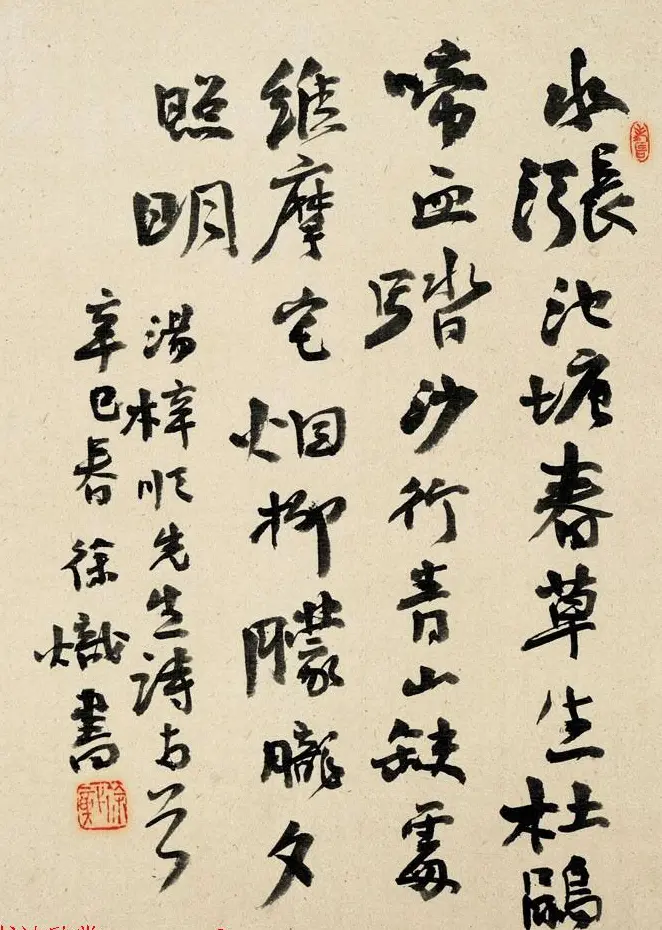 水漲池塘春草生杜鵑
啼血踏沙行青山缺處
維摩宅烟柳朦朧夕
照明
湯梓順先生詩首
辛巳春徐熾書